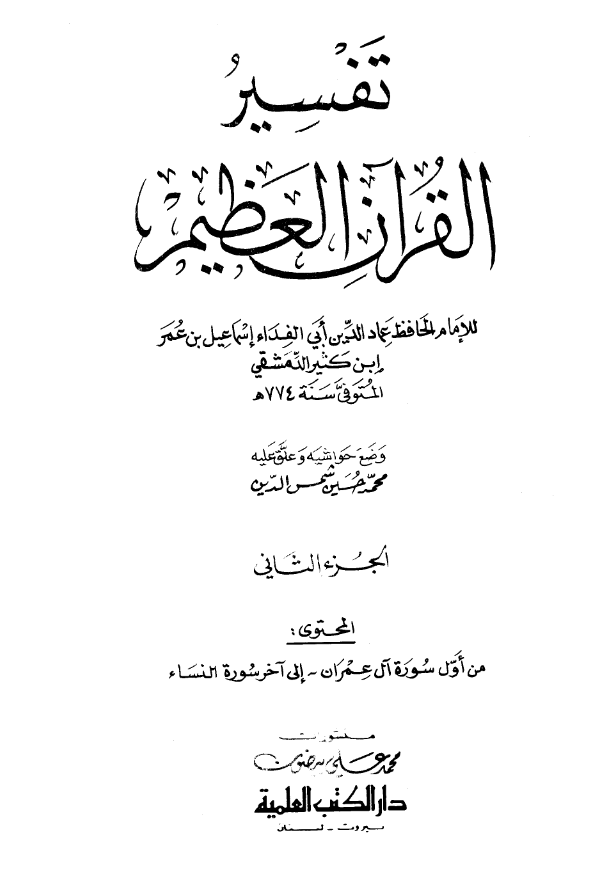 تَفْسِيرُ
القُرآنِ العَظِيمِ
للإمام الحافظ عماد الدِّين أبي الفِدَاء إسْمَاعِيل بن عُمَر
إبن كَثير الدِّمَشقي
المُتَوَفَّى سَنَة ٧٧٤ه
وَضَعَ حَوَاشِيَه وَعلَّقَ عَلَيه
محمّد حُسَين شمس الدّين
الجُزء الثَّاني
المحتوى:
من أوَّل سُورَة آل عِمْرَان - إلى آخر سُورَة النساء
منشورات
محمد علي بيضون
دار الكتب العلمية
بيروت - لبنان